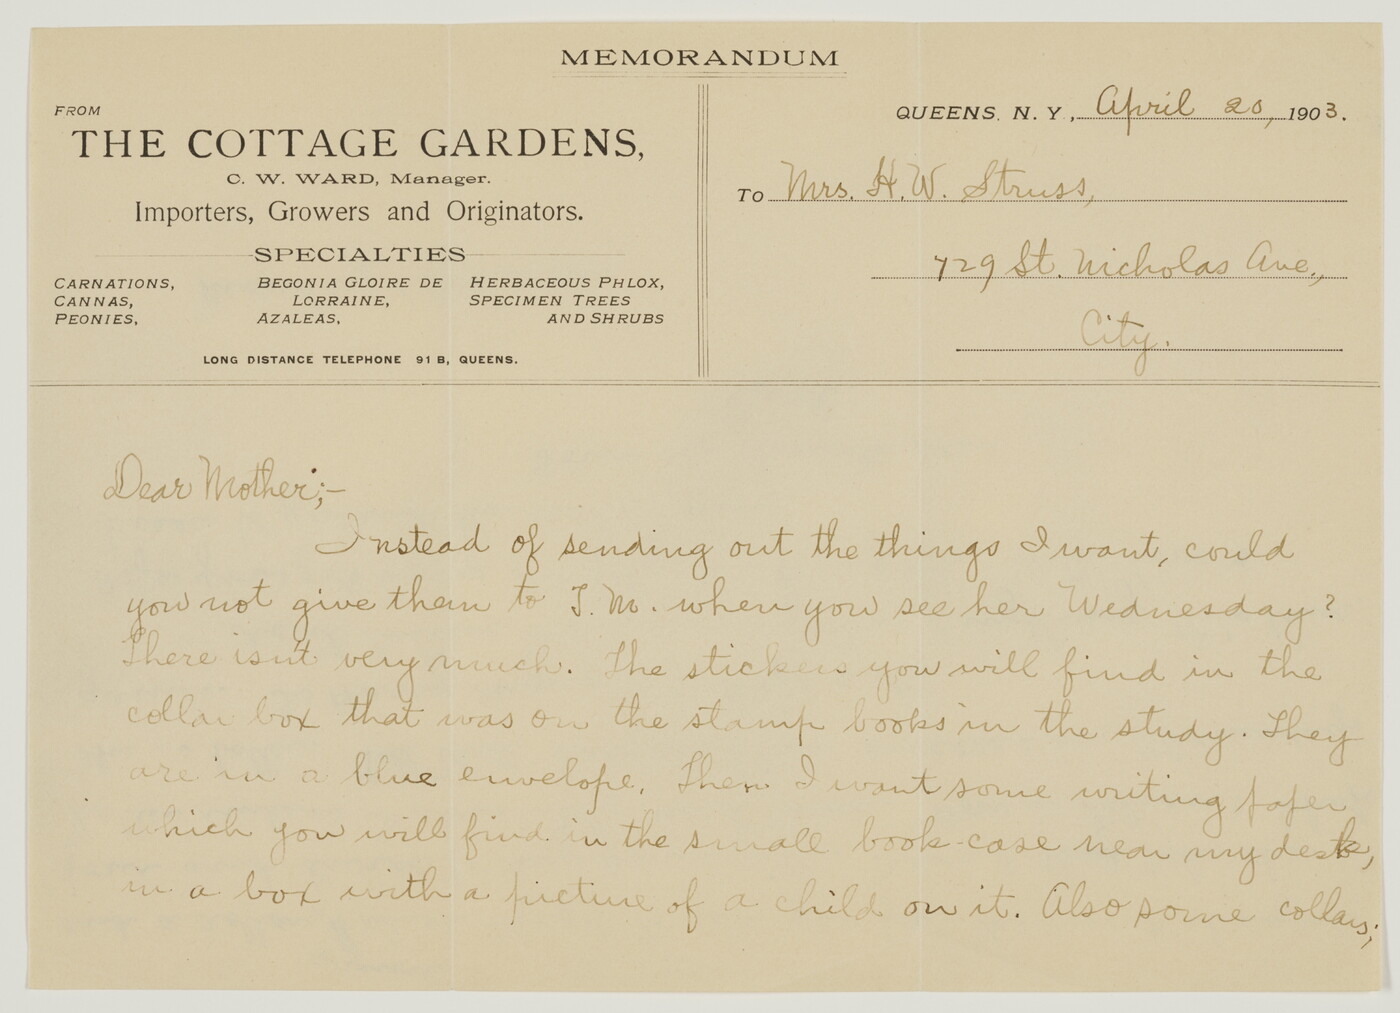 MEMORANDUM
FROM
THE COTTAGE GARDENS,
C. W. WARD, Manager.
Importers, Growers and Originators.
SPECIALTIES
CARNATIONS,
CANNAS,
PEONIES,
BEGONIA GLOIRE DE
LORRAINE,
AZALEAS,
HERBACEOUS PHLOX,
SPECIMEN TREES
AND SHRUBS
LONG DISTANCE TELEPHONE 91 B, QUEENS.
QUEENS. N. Y., April 20, 1903.
TO Mrs. H. W. Struss,
729 St. Nicholas Ave.,
City.
Dear Mother;-
Instead of sending out the things I want, could
you not give them to T. M. when you see her Wednesday?
There isn't very much. The stickers you will find in the
collar box that was on the stamp books in the study. They
are in a blue envelope. Then I want some writing paper
which you will find in the small book-case near my desk,
in a box with a picture of a child on it. Also some collars;